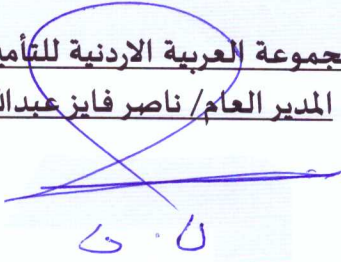 جموعة العربية الاردنية للتأمي
المدير العام/ ناصر فايز عبدال